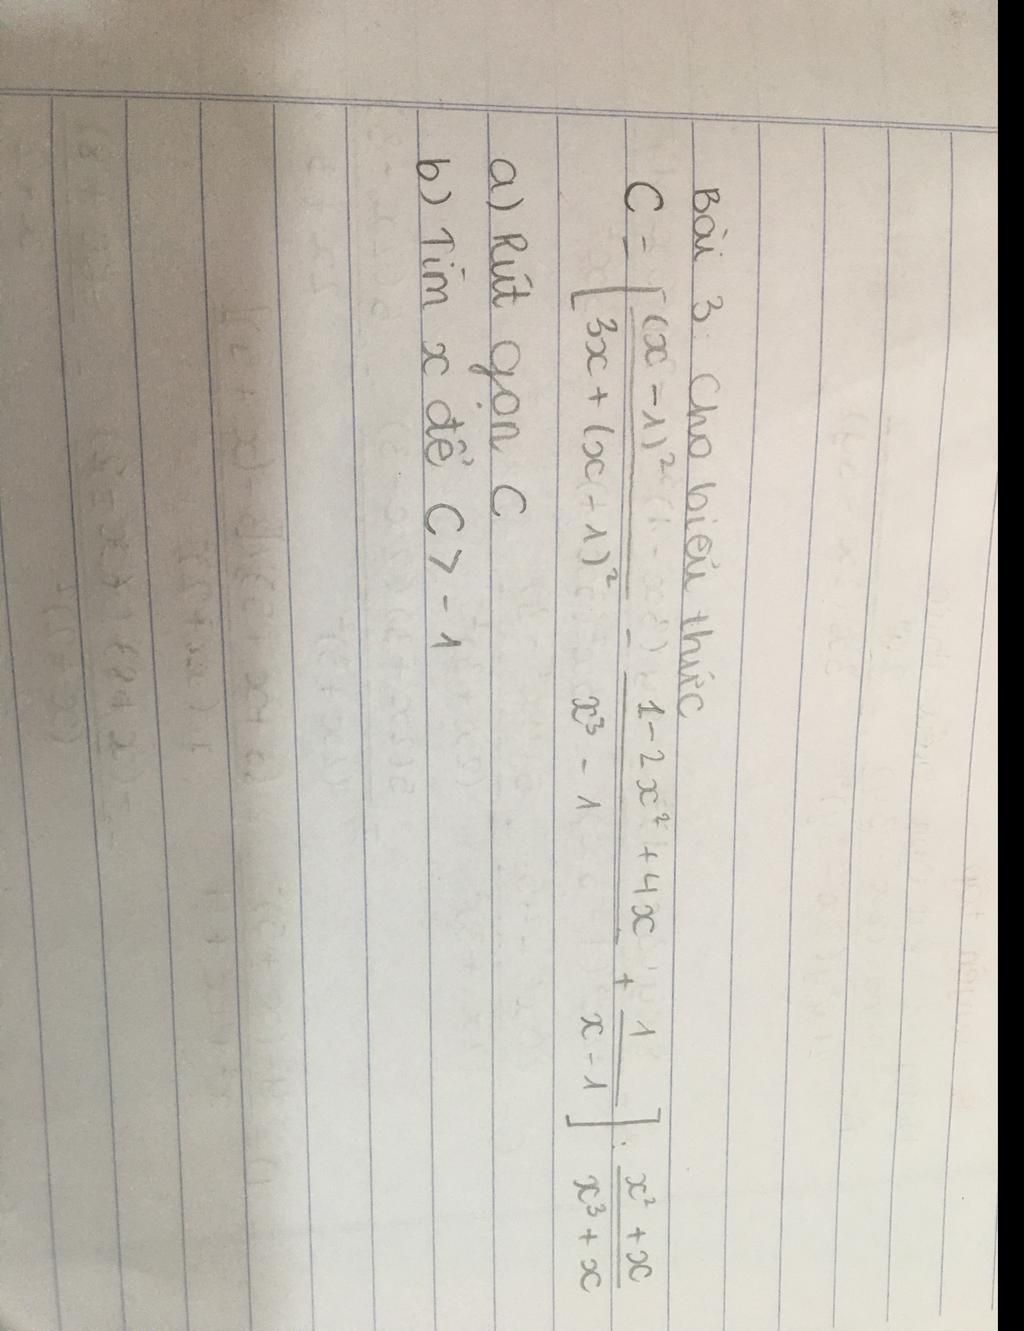 Bài 3: Cho biểu thức
C = [ (x - 1)² / 3x + (x - 1)² - 1 - 2x² + 4x / x³ - 1 + 1 / x - 1 ] : x² + x / x³ + x
a) Rút gọn C
b) Tìm x để C > -1